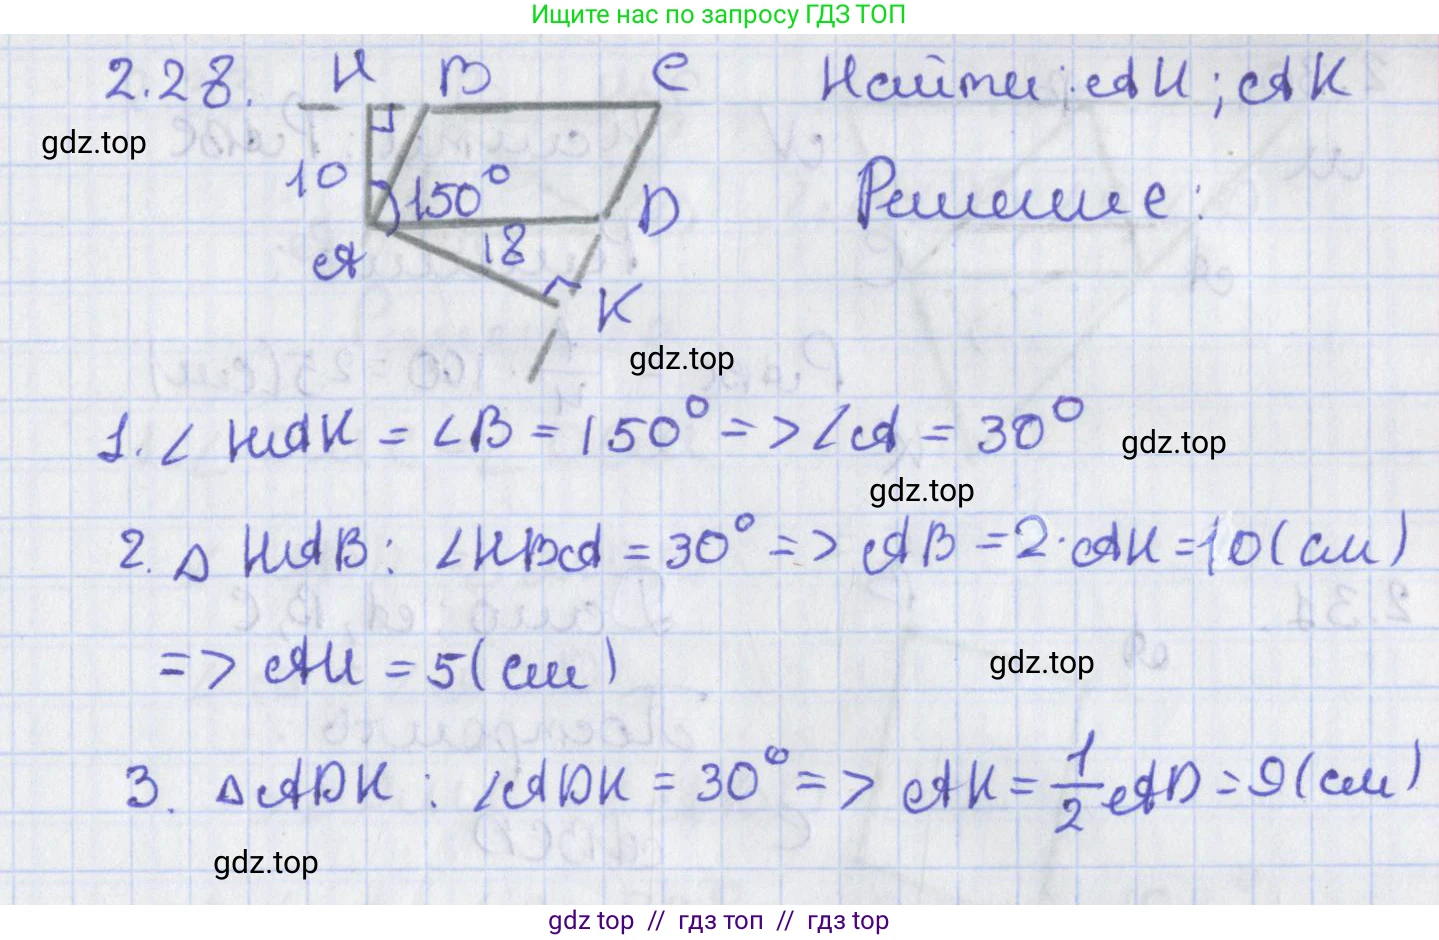 Ищите нас по запросу ГДЗ ТОП
2.28. H B C Найти: AH; AK
gdz.top
10 150° D Решение:
A 18
K
gdz.top
1. ∠HAK = ∠B = 150° => ∠A = 30°
gdz.top
gdz.top
2. △ HAB: ∠HBA = 30° => AB = 2·AH = 10 (см)
=> AH = 5 (см)
gdz.top
3. △ADK: ∠ADK = 30° => AK = 1/2 AD = 9 (см)
gdz.top
gdz top // гдз топ // гдз top